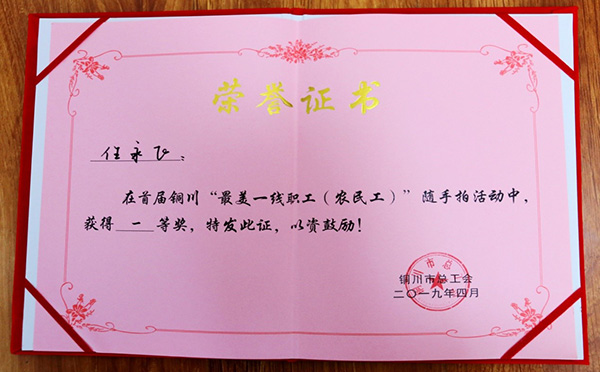 荣誉证书
任永飞：
在首届铜川“最美一线职工（农民工）”随手拍活动中，
获得 一 等奖，特发此证，以资鼓励！
铜川市总工会
二〇一九年四月